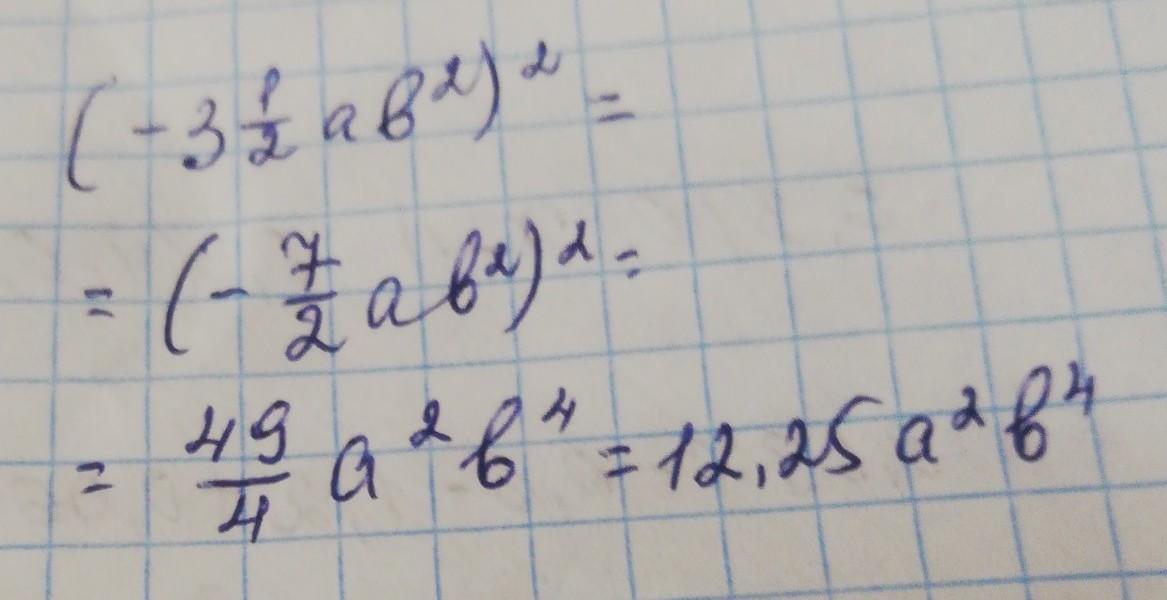 (-3 1/2 ab²)² =
= (- 7/2 ab²)² =
= 49/4 a²b⁴ = 12,25 a²b⁴